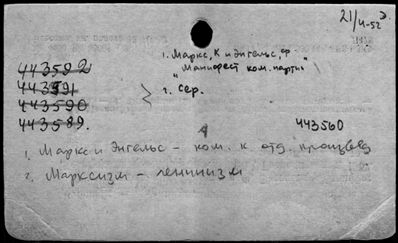 21/II-52 э.
1. Маркс, К и Энгельс, Ф
"Манифест ком. партии"
2. сер.
443592
443591
443590
443589.
443560
1. Маркс и Энгельс – ком. к отд. произвед
2. Марксизм – ленинизм